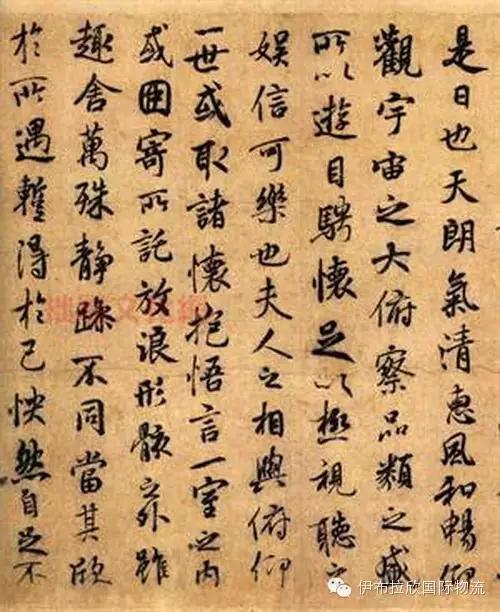 是日也天朗氣清惠風和暢仰
觀宇宙之大俯察品類之盛
所以遊目騁懷足以極視聽之
娛信可樂也夫人之相與俯仰
一世或取諸懷抱悟言一室之內
或因寄所託放浪形骸之外雖
趣舍萬殊靜躁不同當其欣
於所遇暫得於己怏然自足不
伊布拉欣国际物流